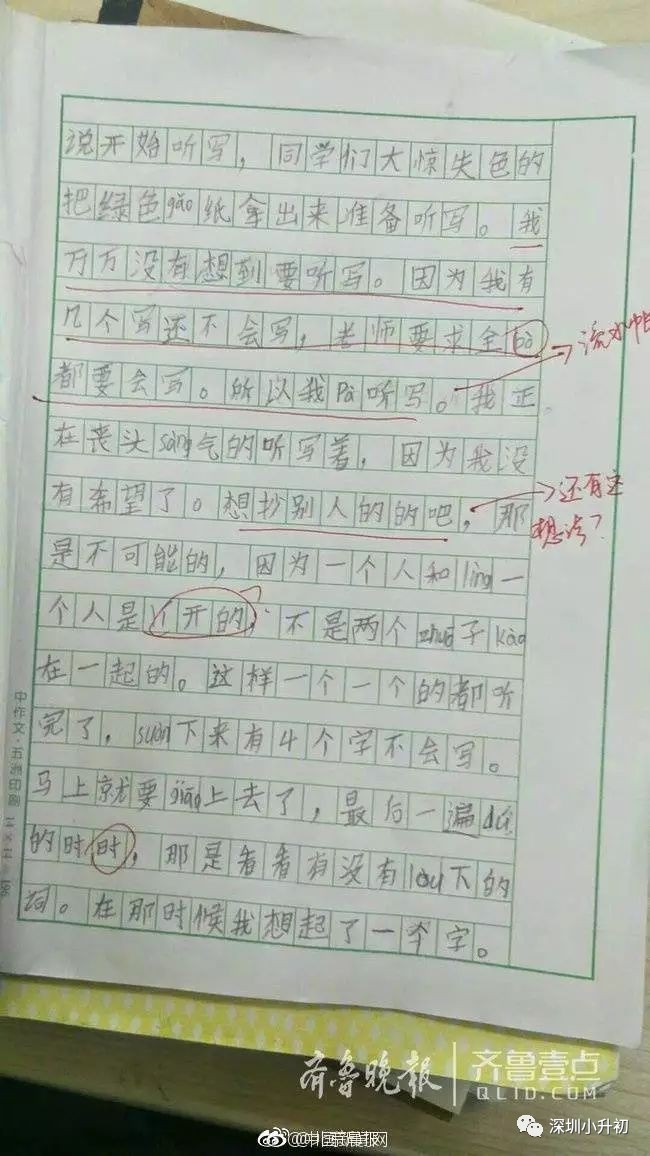 说开始听写，同学们大惊失色的
把绿色gǎo纸拿出来准备听写。我
万万没有想到要听写。因为我有
几个写还不会写，老师要求全bù
都要会写。所以我Pà听写。我正
在丧头sàng气的听写着，因为我没
有希望了。想抄别人的的吧，那
是不可能的，因为一个人和lìng一
个人是开的，不是两个zhuō子kào
在一起的。这样一个一个的都听
完了，suàn下来有4个字不会写。
马上就要jiāo上去了，最后一遍dú
的时时，那是看看有没有lòu下的
词。在那时候我想起了一个字。
流水帐
还有这
想法？
齐鲁晚报
齐鲁壹点
QLID.COM
深圳小升初